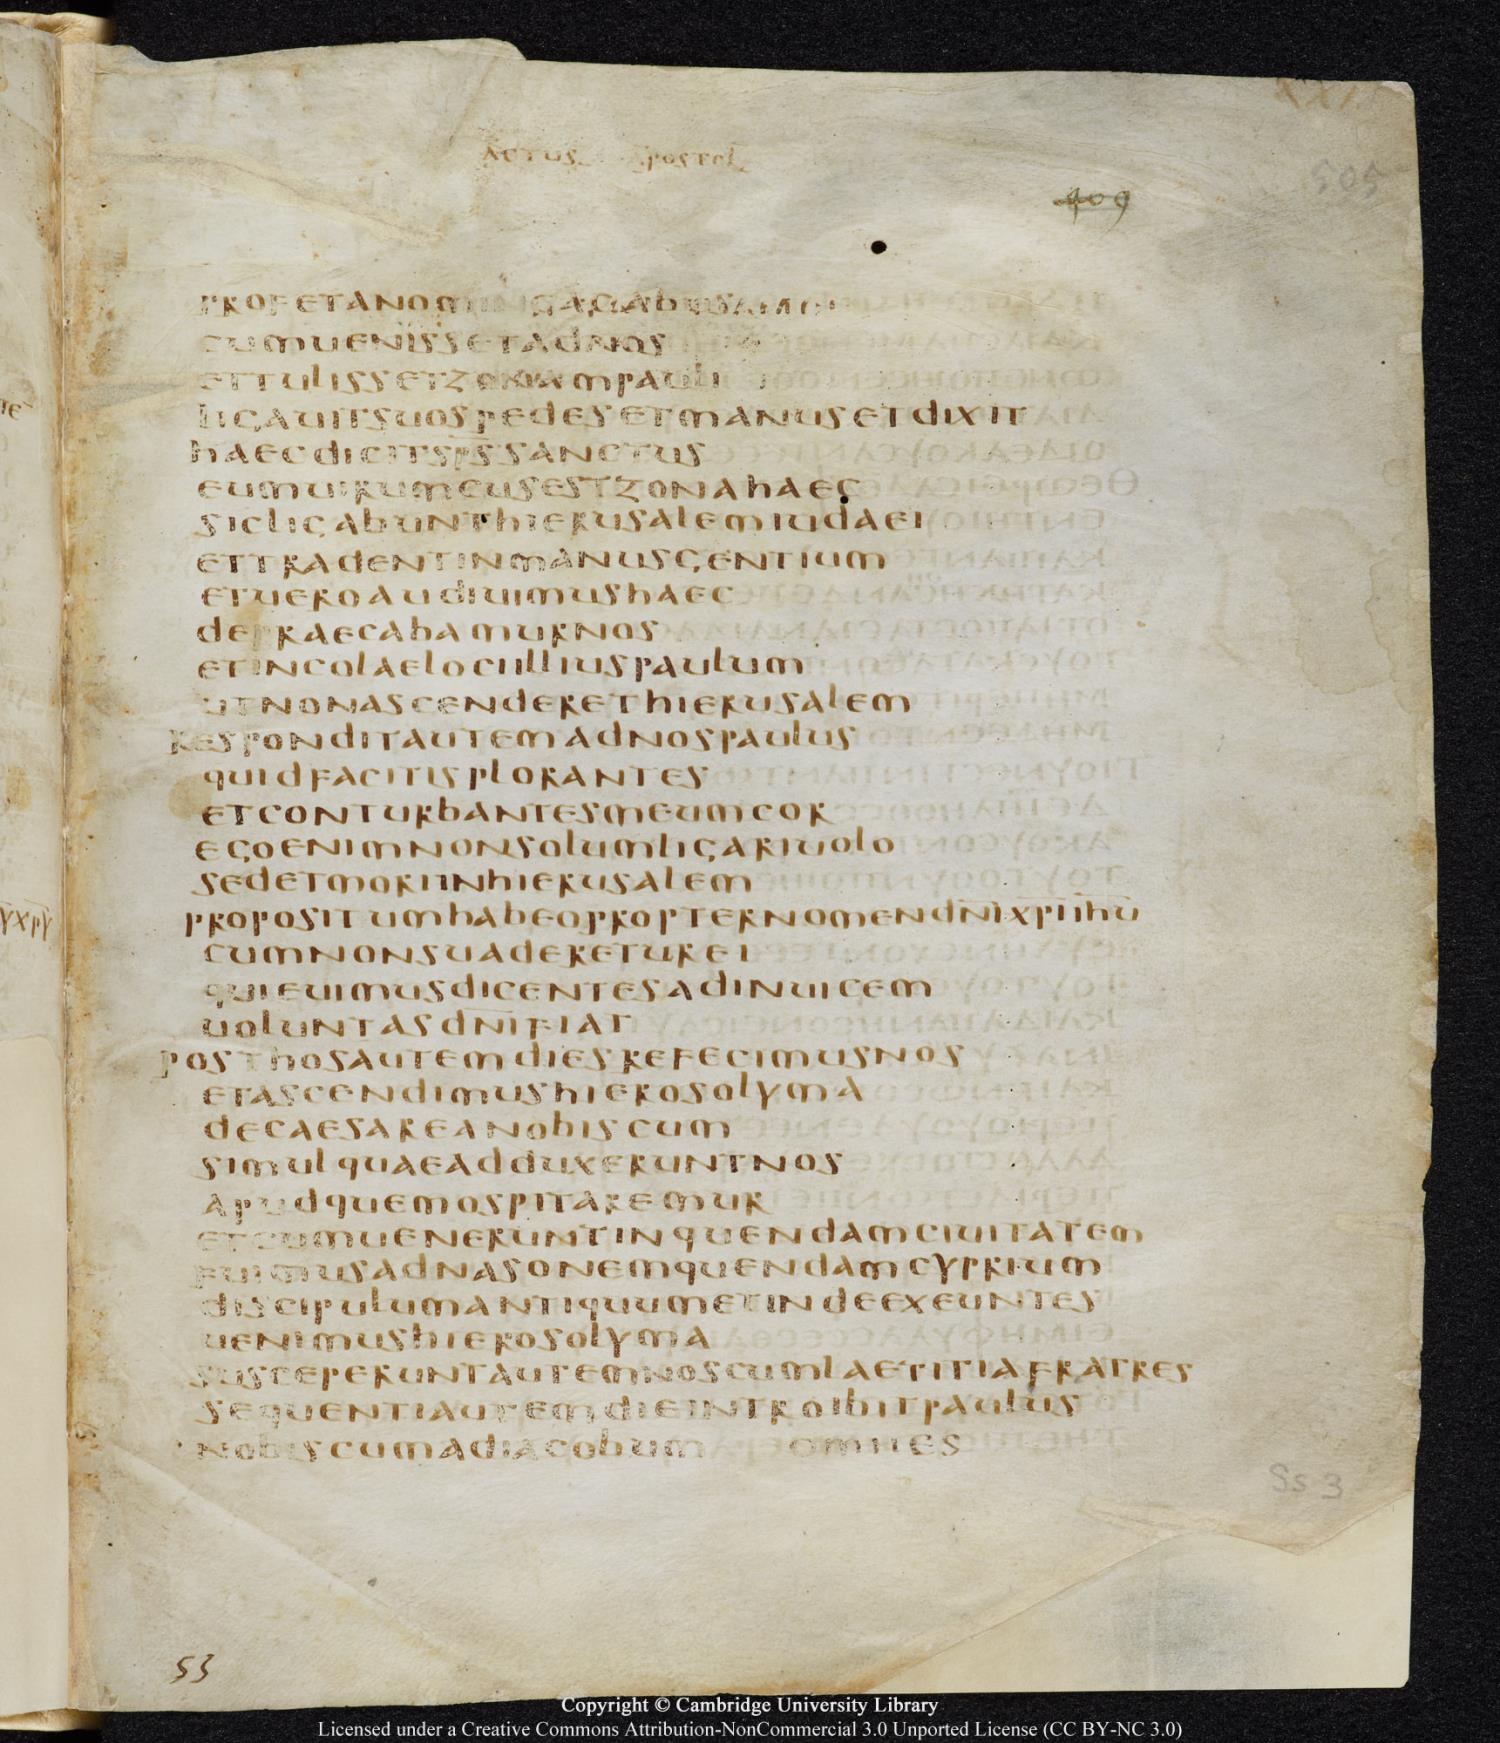 ACTUS APOSTOL
505
409
PROFETANOMINEAGABUS
CUMUENISSETADNOS
ETTULISSETZONAMPAULI
LIGAUITSUOSPEDESETMANUSETDIXIT
HAECDICITSP̅S̅SANCTUS
EUMUIRUMCUSESTZONAHAEC
SICLIGABUNTHIERUSALEMIUDAEI
ETTRADENTINMANUSGENTIUM
ETUEROAUDIUIMUSHAEC
DEPRAECABAMURNOS
ETINCOLAELOCIILLIUSPAULUM
UTNONASCENDERETHIERUSALEM
RESPONDITAUTEMADNOSPAULUS
QUIDFACITISPLORANTES
ETCONTURBANTESMEUMCOR
EGOENIMNONSOLUMLIGARIUOLO
SEDETMORIINHIERUSALEM
PROPOSITUMHABEOPROPTERNOMENDN̅IXP̅IIH̅U̅
CUMNONSUADERETUREI
QUIEUIMUSDICENTESADINUICEM
UOLUNTASDN̅IFIAT
POSTHOSAUTEMDIESREFECIMUSNOS
ETASCENDIMUSHIEROSOLYMA
DECAESAREANOBISCUM
SIMULQUAEADDUXERUNTNOS
APUDQUEMOSPITAREMUR
ETCUMUENERUNTINQUENDAMCIUITATEM
FUIMUSADNASONEMQUENDAMCYPRIUM
DISCIPULUMANTIQUUMETINDEEXEUNTES
UENIMUSHIEROSOLYMA
SUSCEPERUNTAUTEMNOSCUMLAETITIAFRATRES
SEQUENTIAUTEMDIEINTROIBITPAULUS
NOBISCUMADIACOBUM OMNES
Ss 3
53
Copyright © Cambridge University Library
Licensed under a Creative Commons Attribution-NonCommercial 3.0 Unported License (CC BY-NC 3.0)